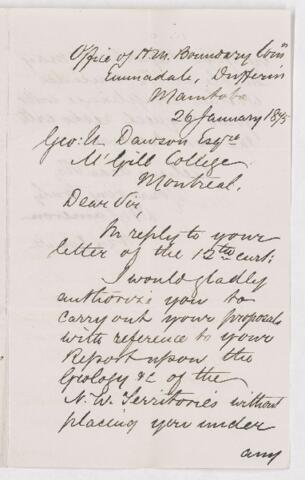 Office of H.M. Boundary Com
Emmadale, Dufferin
Manitoba
26 January 1875
Geo: M Dawson Esqre
McGill College
Montreal.
Dear Sir,
In reply to your
letter of the 12th curt:
I would gladly
authorise you to
carry out your proposals
with reference to your
Report upon the
Geology &c of the
N. W. Territories without
placing you under
any